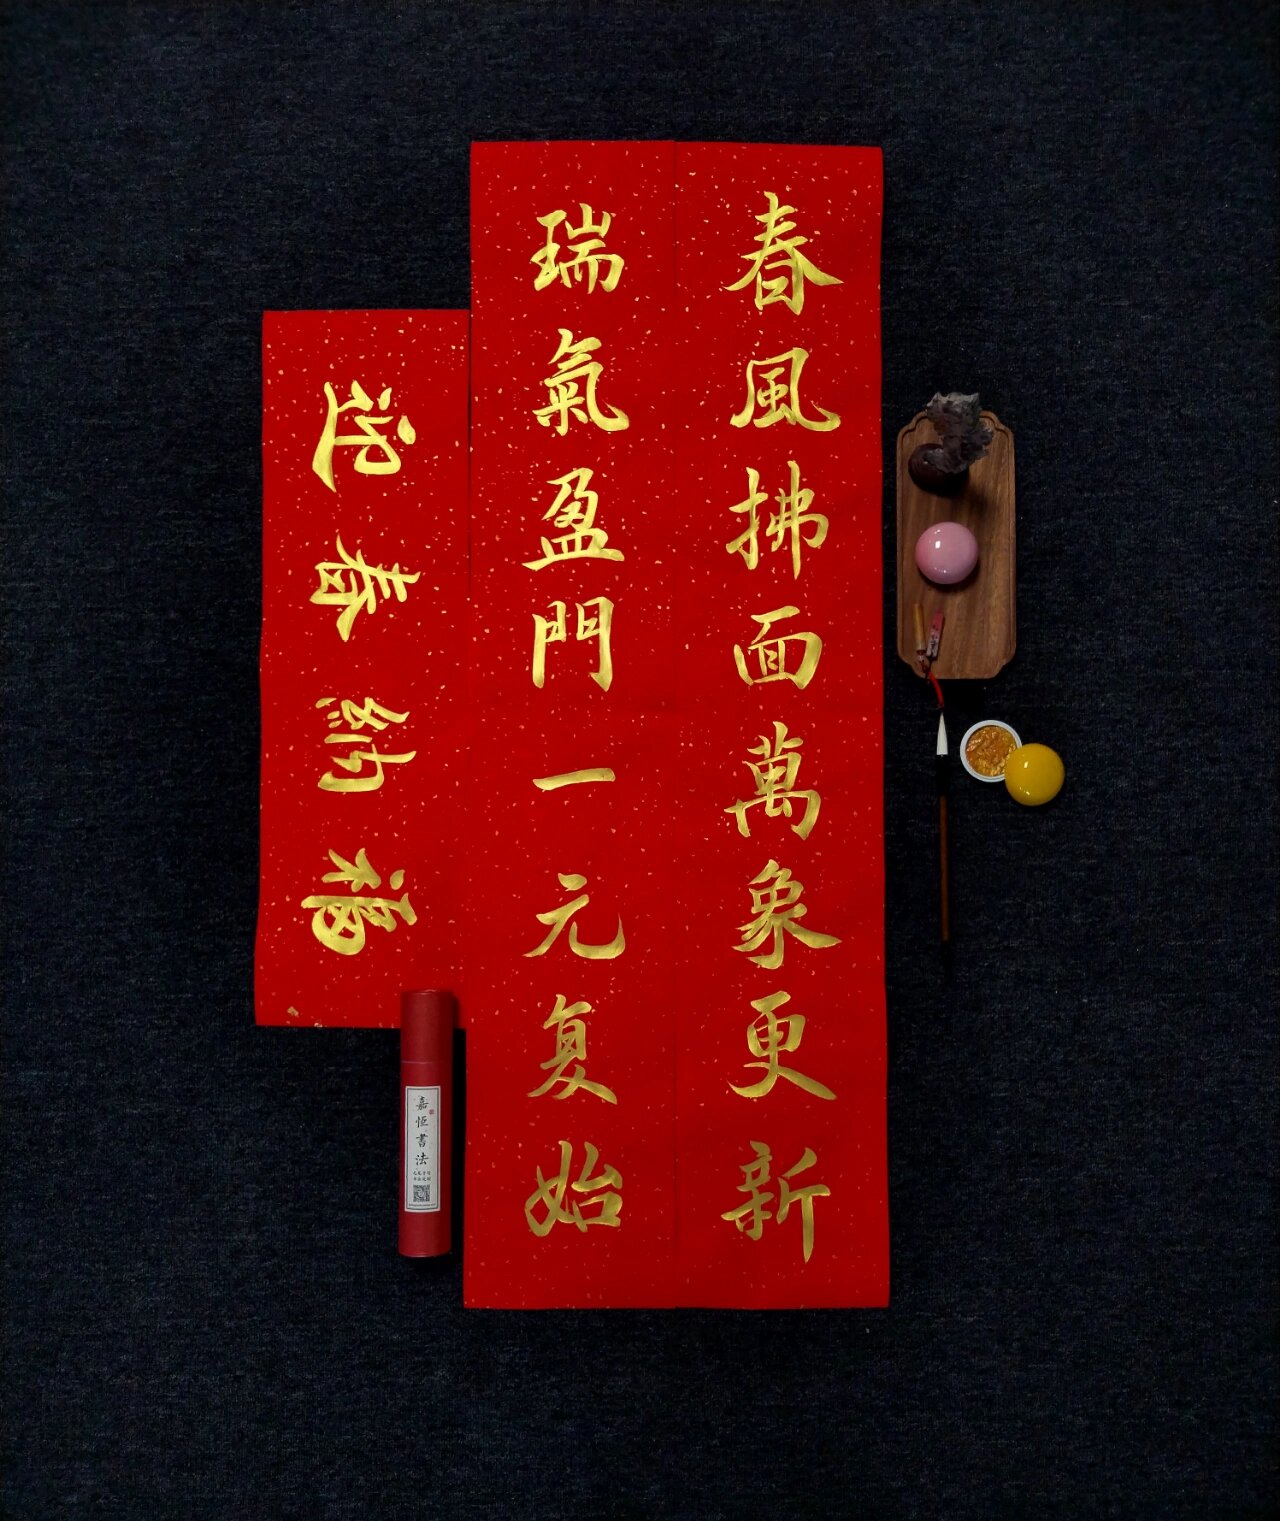 春風拂面萬象更新
瑞氣盈門一元复始
迎春納福
嘉恒書法